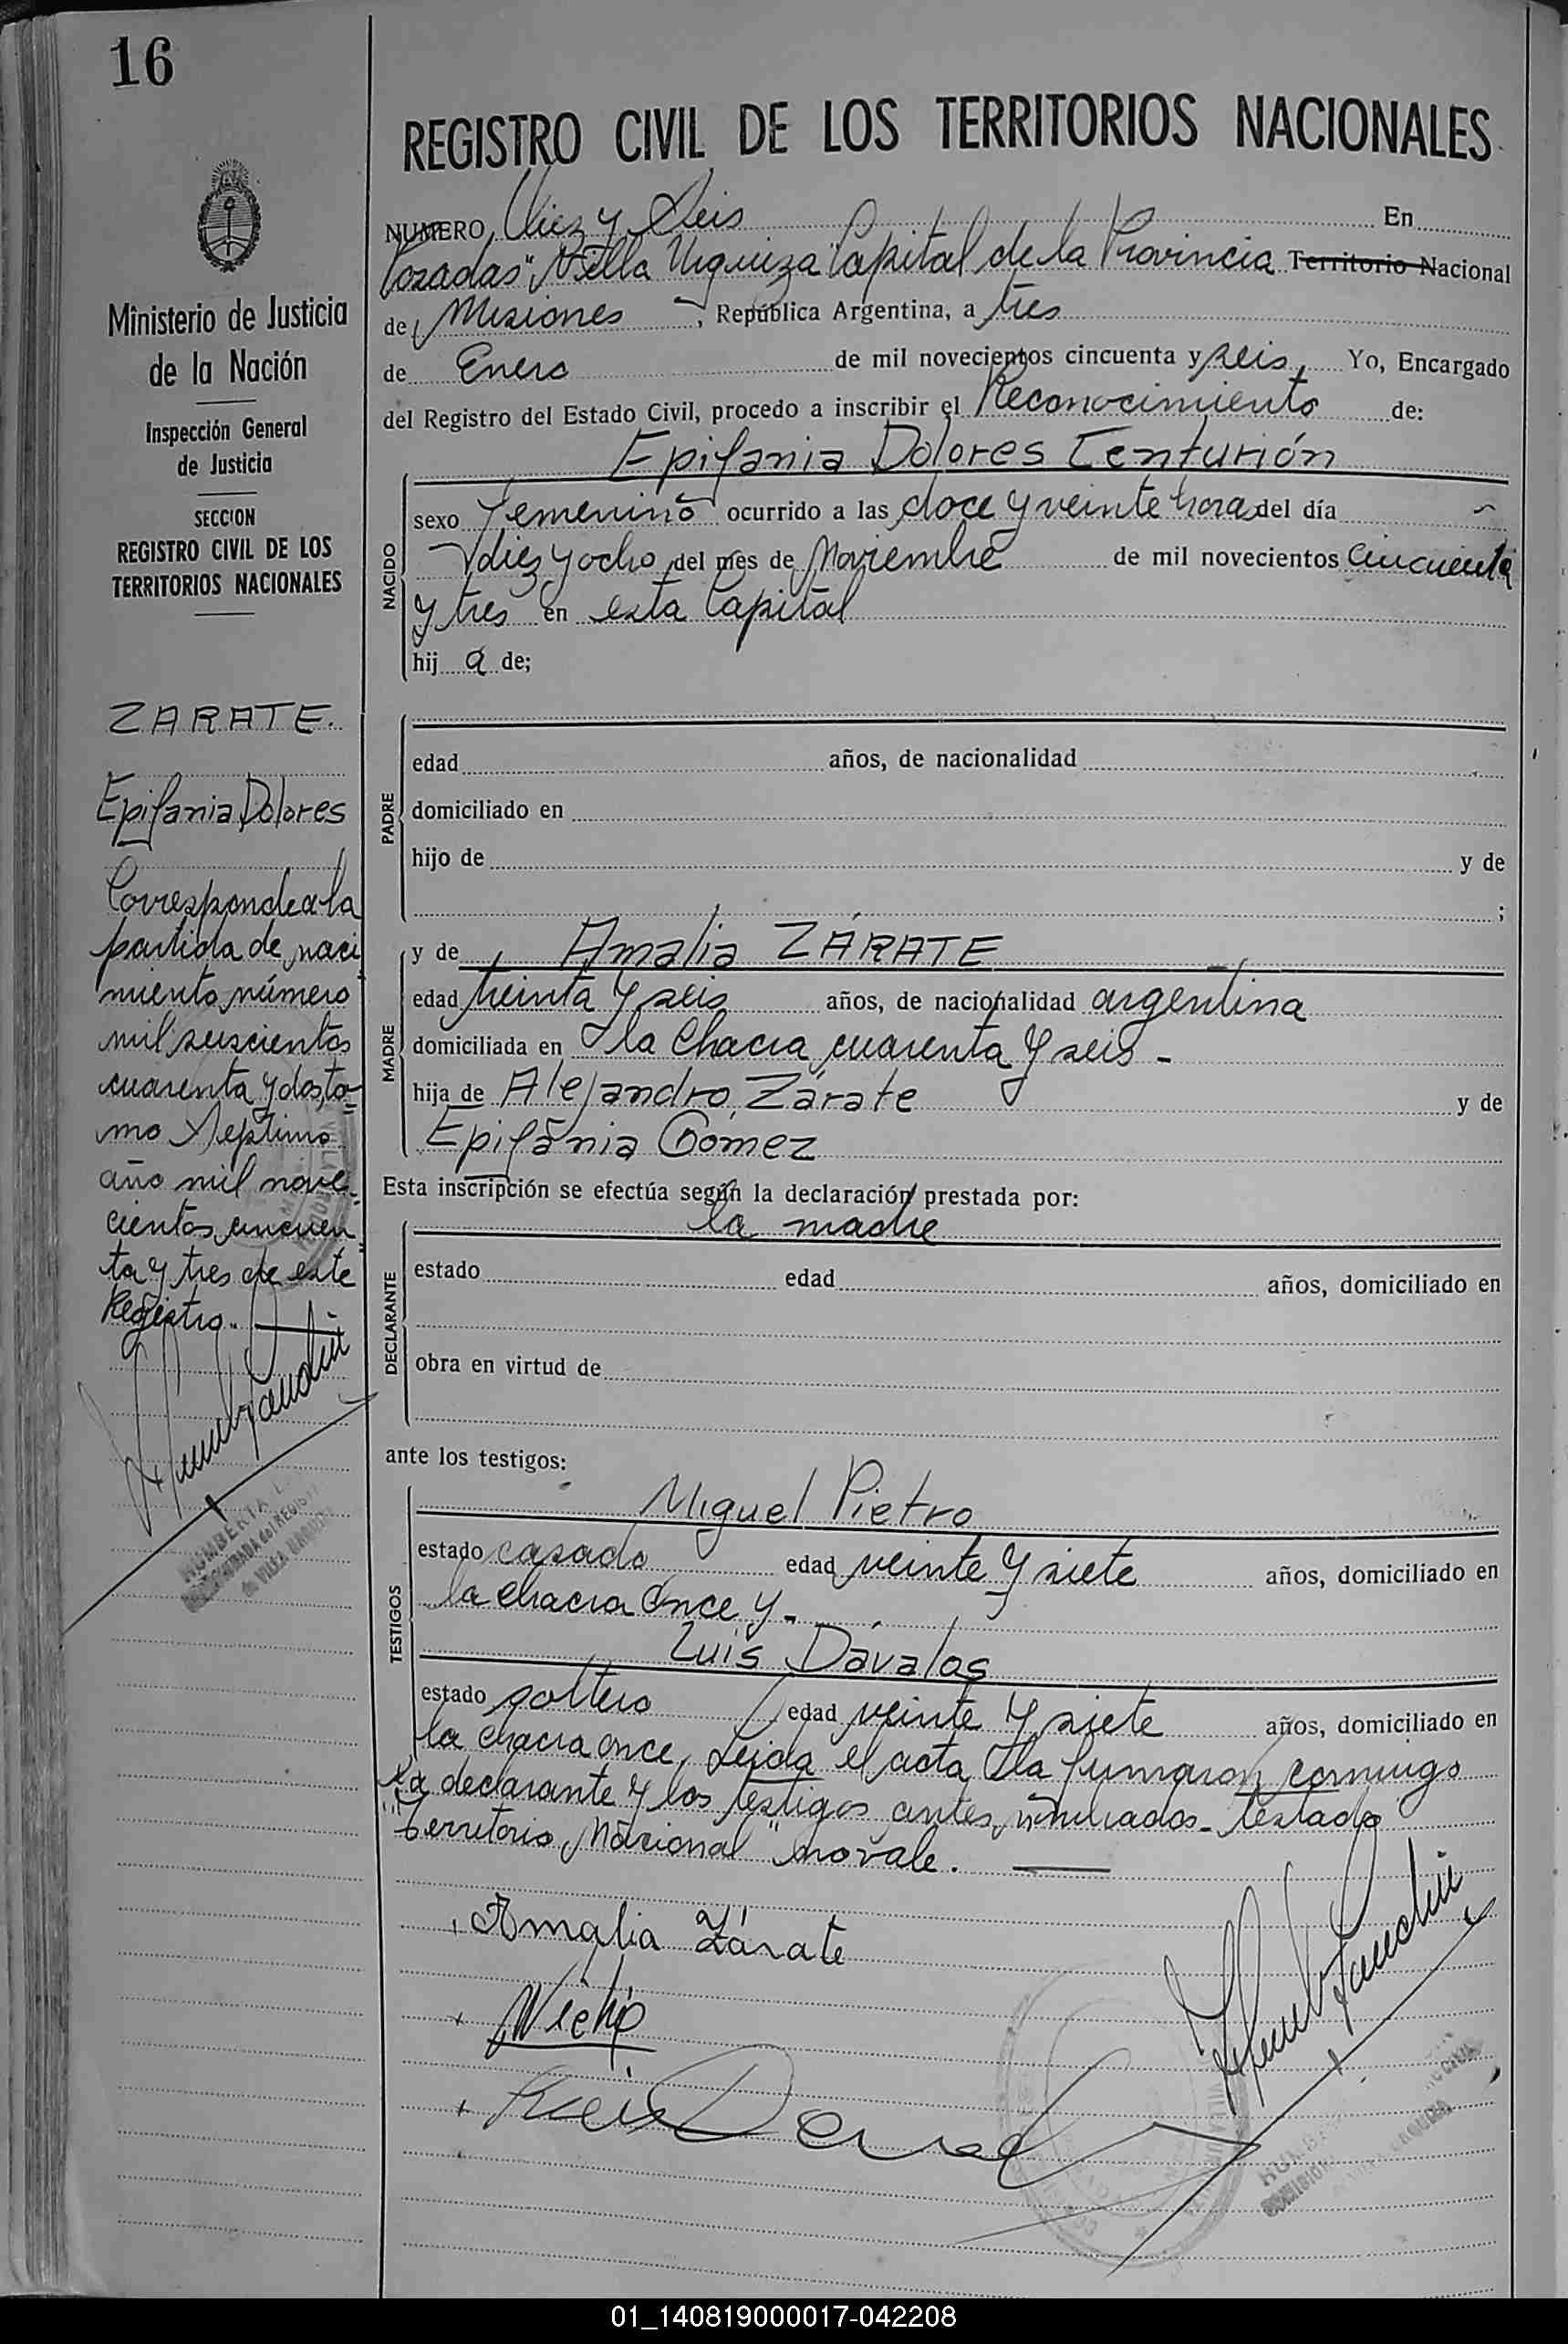 16
REGISTRO CIVIL DE LOS TERRITORIOS NACIONALES
NUMERO Diez y Seis En
Posadas "Villa Urquiza" Capital de la Provincia Territorio Nacional
de Misiones, República Argentina, a tres
de Enero de mil novecientos cincuenta y seis, Yo, Encargado
del Registro del Estado Civil, procedo a inscribir el Reconocimiento de:
Epifania Dolores Centurión
NACIDO
sexo femenino ocurrido a las doce y veinte horas del día
diez y ocho del mes de Noviembre de mil novecientos cincuenta
y tres en esta Capital
hij a de;
PADRE
edad años, de nacionalidad
domiciliado en
hijo de y de
;
MADRE
y de Amalia ZÁRATE
edad treinta y seis años, de nacionalidad argentina
domiciliada en la Chacra cuarenta y seis -
hija de Alejandro Zárate y de
Epifania Gómez
Esta inscripción se efectúa según la declaración prestada por:
la madre
DECLARANTE
estado edad años, domiciliado en
obra en virtud de
ante los testigos:
TESTIGOS
Miguel Pietro
estado casado edad veinte y siete años, domiciliado en
la chacra once y -
Luis Dávalos
estado soltero edad veinte y siete años, domiciliado en
la chacra once, Leida el acta la firmaron conmigo
la declarante y los testigos antes nombrados - testado
"Territorio Nacional" no vale.
Amalia Zárate
Ministerio de Justicia
de la Nación
Inspección General
de Justicia
SECCION
REGISTRO CIVIL DE LOS
TERRITORIOS NACIONALES
ZARATE.
Epifania Dolores
Corresponde a la
partida de naci
miento número
mil seiscientos
cuarenta y dos, to-
mo Septimo
año mil nove-
cientos cincuen
ta y tres de este
Registro.
01_140819000017-042208